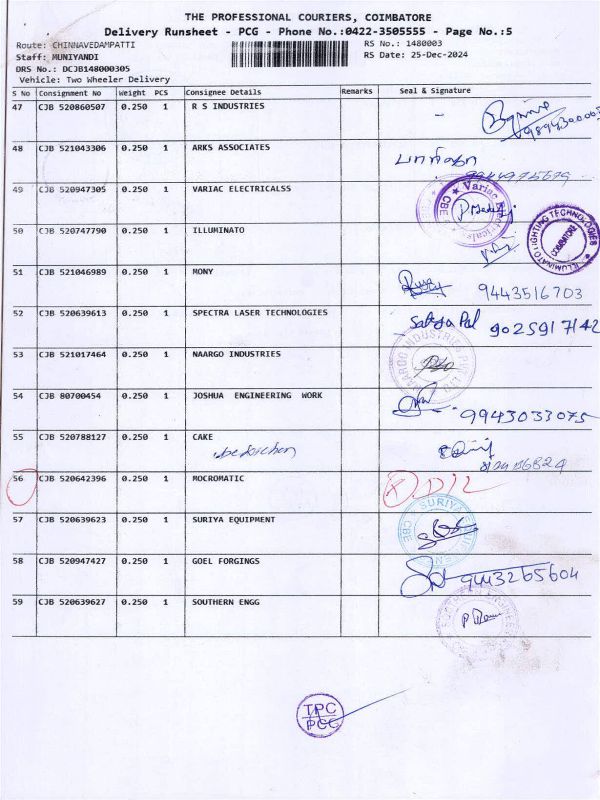 THE PROFESSIONAL COURIERS, COIMBATORE
Delivery Runsheet - PCG - Phone No.:0422-3505555 - Page No.:5
Route: CHINNAVEDAMPATTI
RS No.: 1480003
Staff: MUNIYANDI
RS Date: 25-Dec-2024
DRS No.: DCJB148000305
Vehicle: Two Wheeler Delivery
S No Consignment No Weight PCS Consignee Details Remarks Seal & Signature
47 CJB 520860507 0.250 1 R S INDUSTRIES -
48 CJB 521043306 0.250 1 ARKS ASSOCIATES
49 CJB 520947305 0.250 1 VARIAC ELECTRICALSS
50 CJB 520747790 0.250 1 ILLUMINATO
ILLUMINATO LIGHTING TECHNOLOGIES
COIMBATORE
51 CJB 521046989 0.250 1 MONY 9443516703
52 CJB 520639613 0.250 1 SPECTRA LASER TECHNOLOGIES Sathya Pal 9025917142
53 CJB 521017464 0.250 1 NAARGO INDUSTRIES
54 CJB 80700454 0.250 1 JOSHUA ENGINEERING WORK 9943033075
55 CJB 520788127 0.250 1 CAKE
56 CJB 520642396 0.250 1 MOCROMATIC X D/L
57 CJB 520639623 0.250 1 SURIYA EQUIPMENT
58 CJB 520947427 0.250 1 GOEL FORGINGS 9443265604
59 CJB 520639627 0.250 1 SOUTHERN ENGG
TPC
PCG